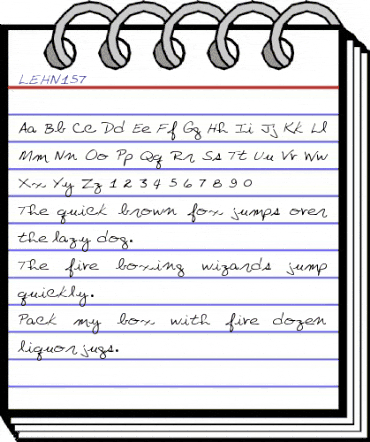 LEHN157
Aa Bb Cc Dd Ee Ff Gg Hh Ii Jj Kk Ll
Mm Nn Oo Pp Qq Rr Ss Tt Uu Vv Ww
Xx Yy Zz 1 2 3 4 5 6 7 8 9 0
The quick brown fox jumps over
the lazy dog.
The five boxing wizards jump
quickly.
Pack my box with five dozen
liquor jugs.